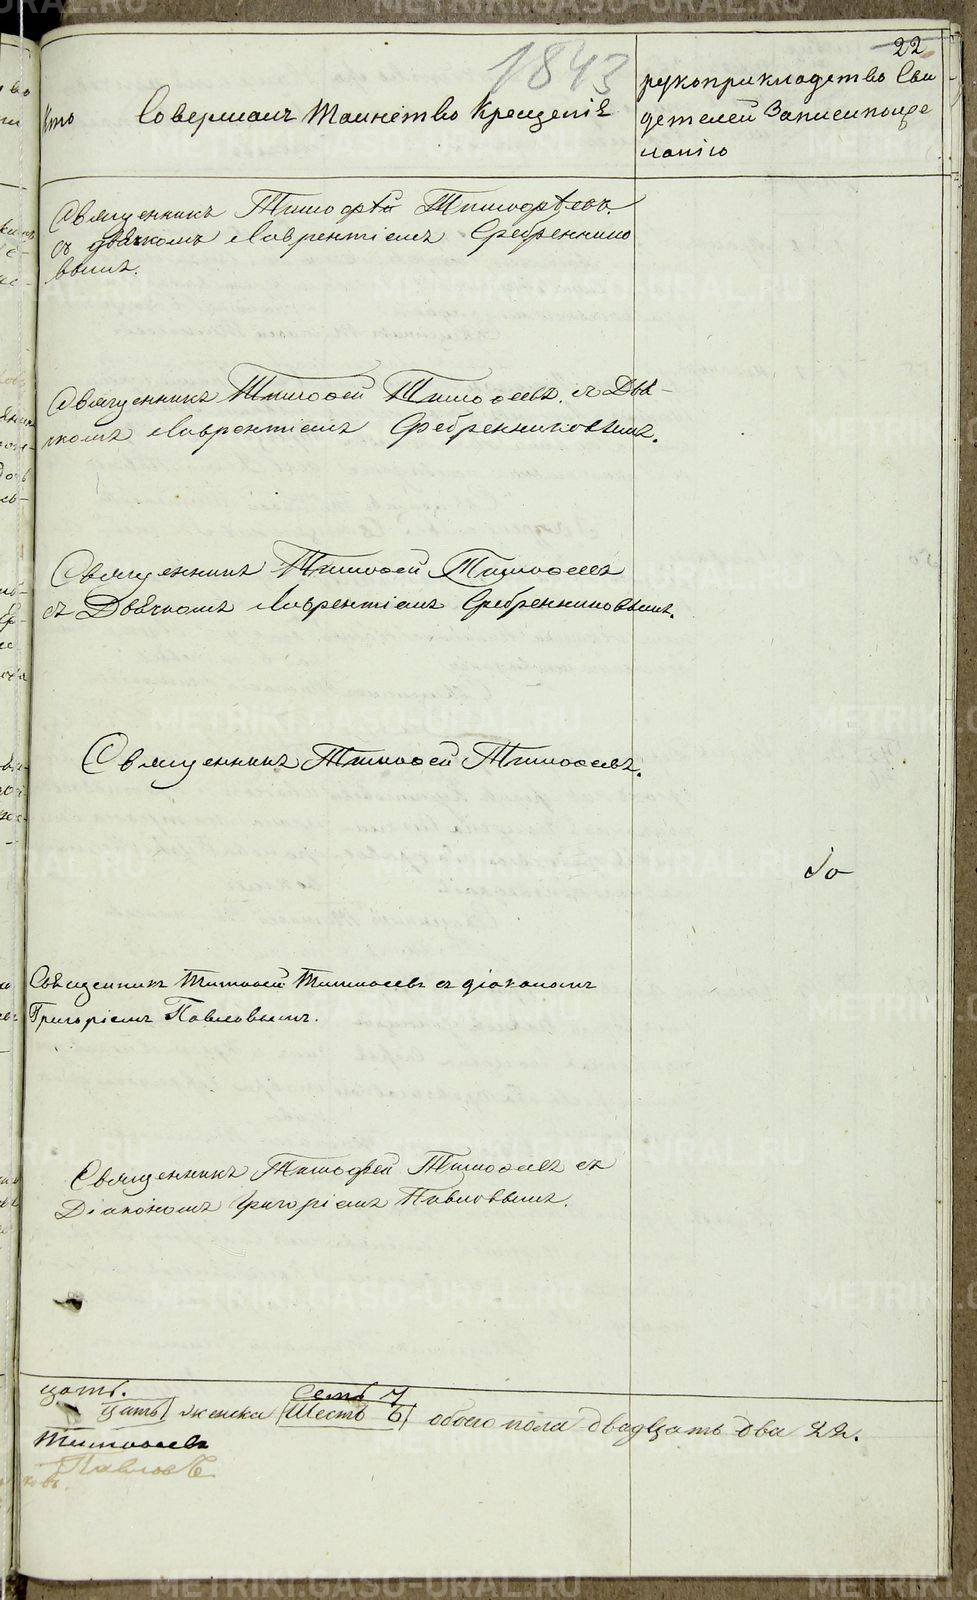 1843
22
Кто Совершалъ Таинство Крещенія
рукоприкладство Сви
детелей Записи поже
ланію
Священникъ Тимофѣй Тимофѣевъ.
съ дьячкомъ Лаврентіемъ Сребреннико
вымъ.
Священникъ Тимофей Тимофеевъ. съ Дья-
чкомъ Лаврентіемъ Сребренниковымъ.
Священникъ Тимофей Тимофеевъ
съ Дьячкомъ Лаврентіемъ Сребренниковымъ.
Священникъ Тимофей Тимофеевъ.
Священникъ Тимофей Тимофеевъ съ діакономъ
Григоріемъ Павловымъ.
Священникъ Тимофей Тимофеевъ съ
Діакономъ Григоріемъ Павловымъ.
цать. Семь 7
цать женска Шесть 6 обоего пола двадцать два 22.
Тимофеевъ
Павловъ